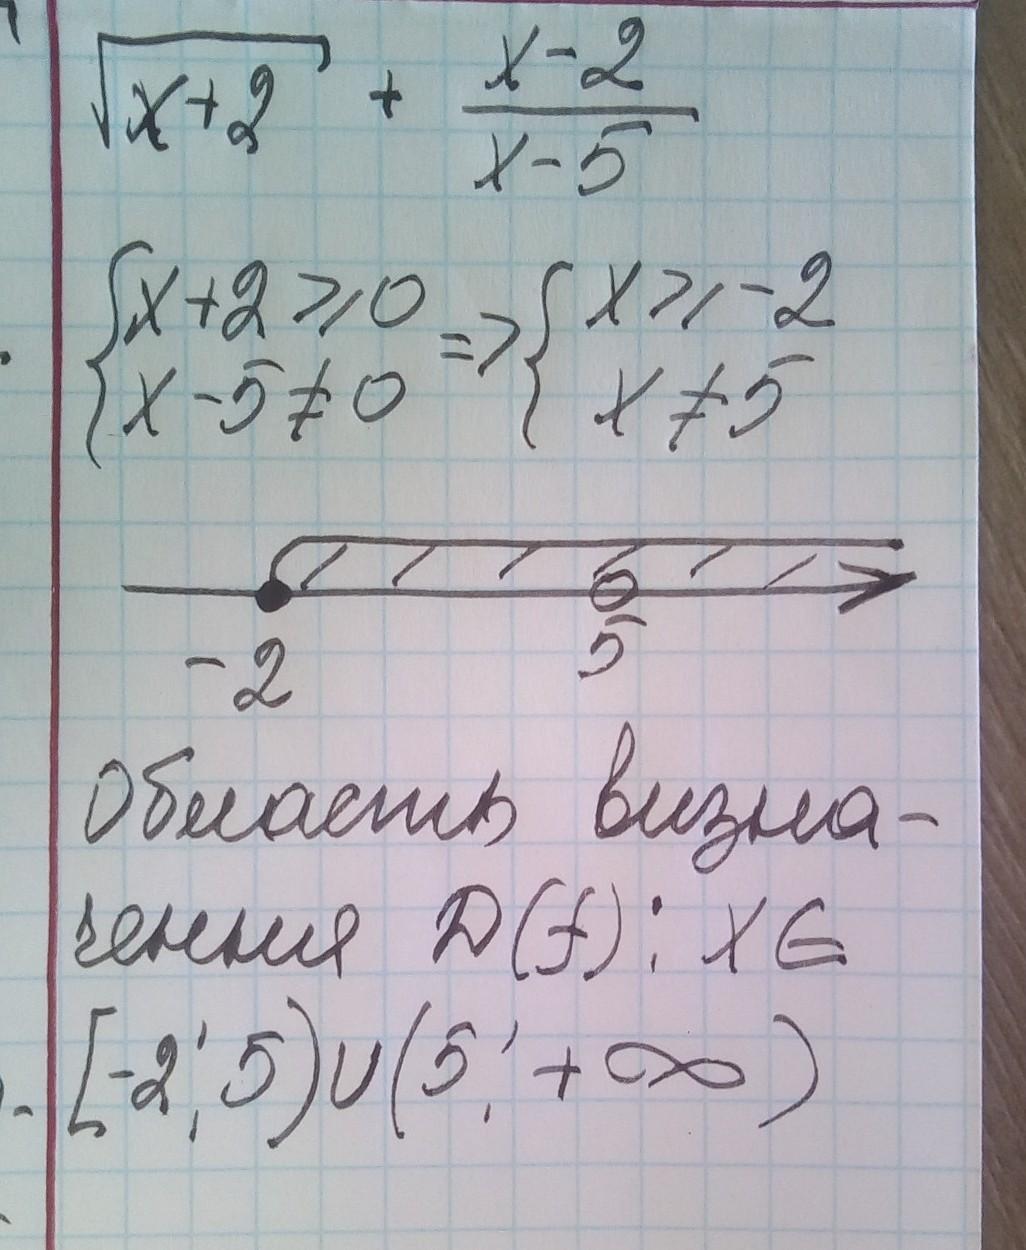 √(x+2) + (x-2)/(x-5)
{x+2 ⩾ 0 => {x ⩾ -2
{x-5 ≠ 0 {x ≠ 5
-2 5
Область визна-
чення D(f): x ∈
[-2; 5) ∪ (5; +∞)